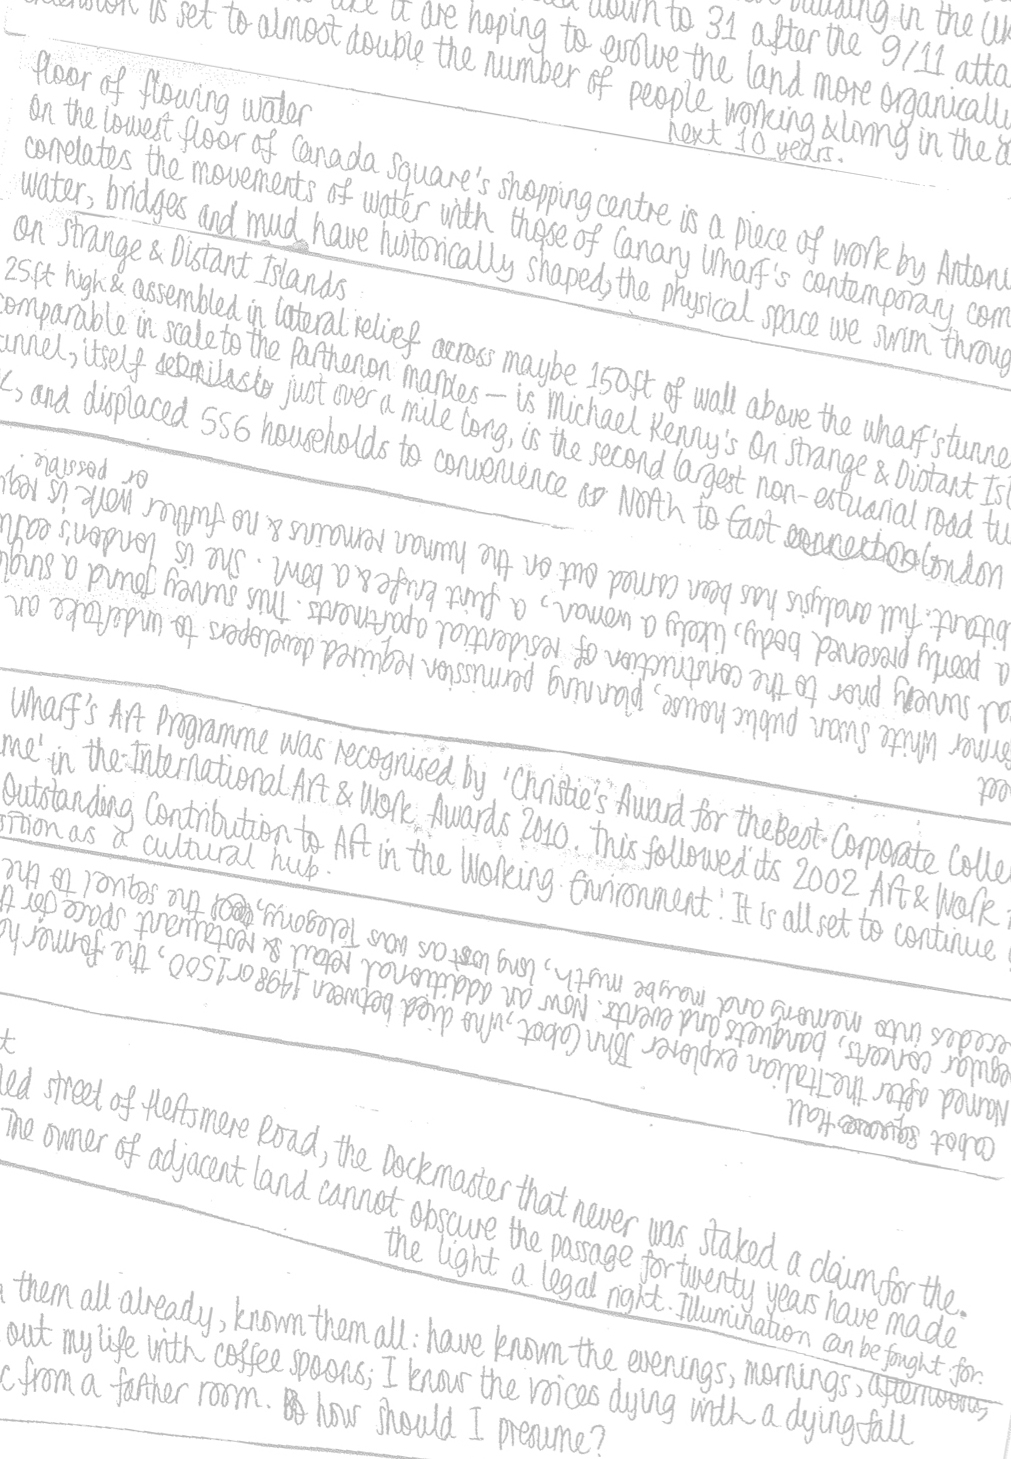 building in the
down to 31 after the 9/11
it are hoping to evolve the land more organically
is set to almost double the number of people working & living in the
next 10 years.
floor of flowing water
on the lowest floor of Canada Square's shopping centre is a piece of work by
correlates the movements of water with those of Canary Wharf's contemporary
water, bridges and mud have historically shaped, the physical space we swim
on Strange & Distant Islands
25ft high & assembled in lateral relief across maybe 150ft of wall above the wharf's
comparable in scale to the Parthenon marbles – is Michael Kenny's On Strange & Distant
itself just over a mile long, is the second largest non-estuarial road
and displaced 556 households to convenience North to East London
former White Swan public house, planning permission required developers to undertake an
survey prior to the construction of residential apartments. This survey found a
a poorly preserved body, likely a woman, a flint knife & a bowl. She is London's
full analysis has been carried out on the human remains & no further work is
or possible.
Wharf's Art Programme was recognised by 'Christie's Award for the Best Corporate
in the International Art & Work Awards 2010. This followed its 2002 Art & Work
Outstanding Contribution to Art in the Working Environment'. It is all set to continue
as a cultural hub.
Cabot Hall
Named after the Italian explorer John Cabot, who died between 1498 or 1500, the former
concerts, banquets and events. Now an additional retail & restaurant space for
recedes into memory and maybe myth, long as was the sequel to the
street of Hertsmere Road, the Dockmaster that never was staked a claim for the.
The owner of adjacent land cannot obscure the passage for twenty years have made
the light a legal right. Illumination can be fought for.
them all already, known them all: have known the evenings, mornings, afternoons,
out my life with coffee spoons; I know the voices dying with a dying fall
from a farther room. how should I presume?